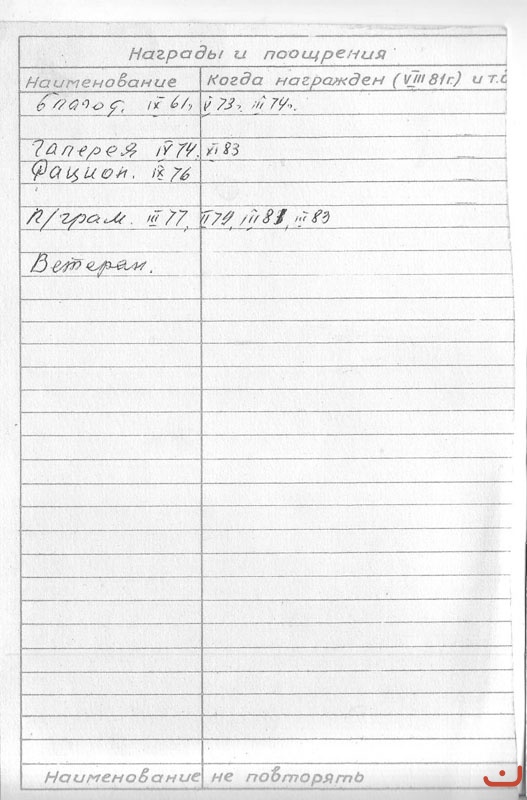 Награды и поощрения
Наименование Когда награжден (VIII 81г.) и т.д
Благод. IX 61, V 73, III 74,
Галерея IV 74, XI 83
Рацион. IX 76
П/грам. III 77, II 79, III 81, III 83
Ветеран.
Наименование не повторять